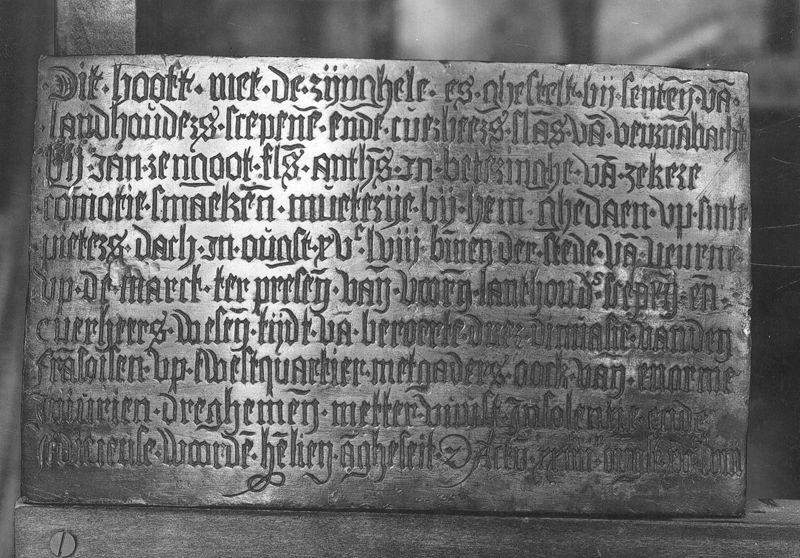 Dit · hooft · met · de · zijnghele · es · ghestelt · bij · sentēn · vā ·
landhouders · scepenē · ende · cuerheers · slās · vā · veurnābacht
Bij Jan · zengoot · fs̄ · anthō · in · beteringhe · vā · zekere
comotie · smaekēn · mueterije · bij · hem · ghedaen · up · sinte
pieters · dach · in · ougst · xvᶜ lviij binen der · stede · vā · veurne
up · de · marct · ter presēn · van · voorn · landhoudˢ scepēn · en̄ ·
cuerheers · wesēn · tijdt · vā · beroerte duer dinvasie · vanden
frāsoisen · up · twestquartier · metgaders · oock · van · enorme
iniurien · dreghemen · metter · vuust · insolente · ende
iniurieuse · woordē · hēlien · āgheseit · Actū xxiiij